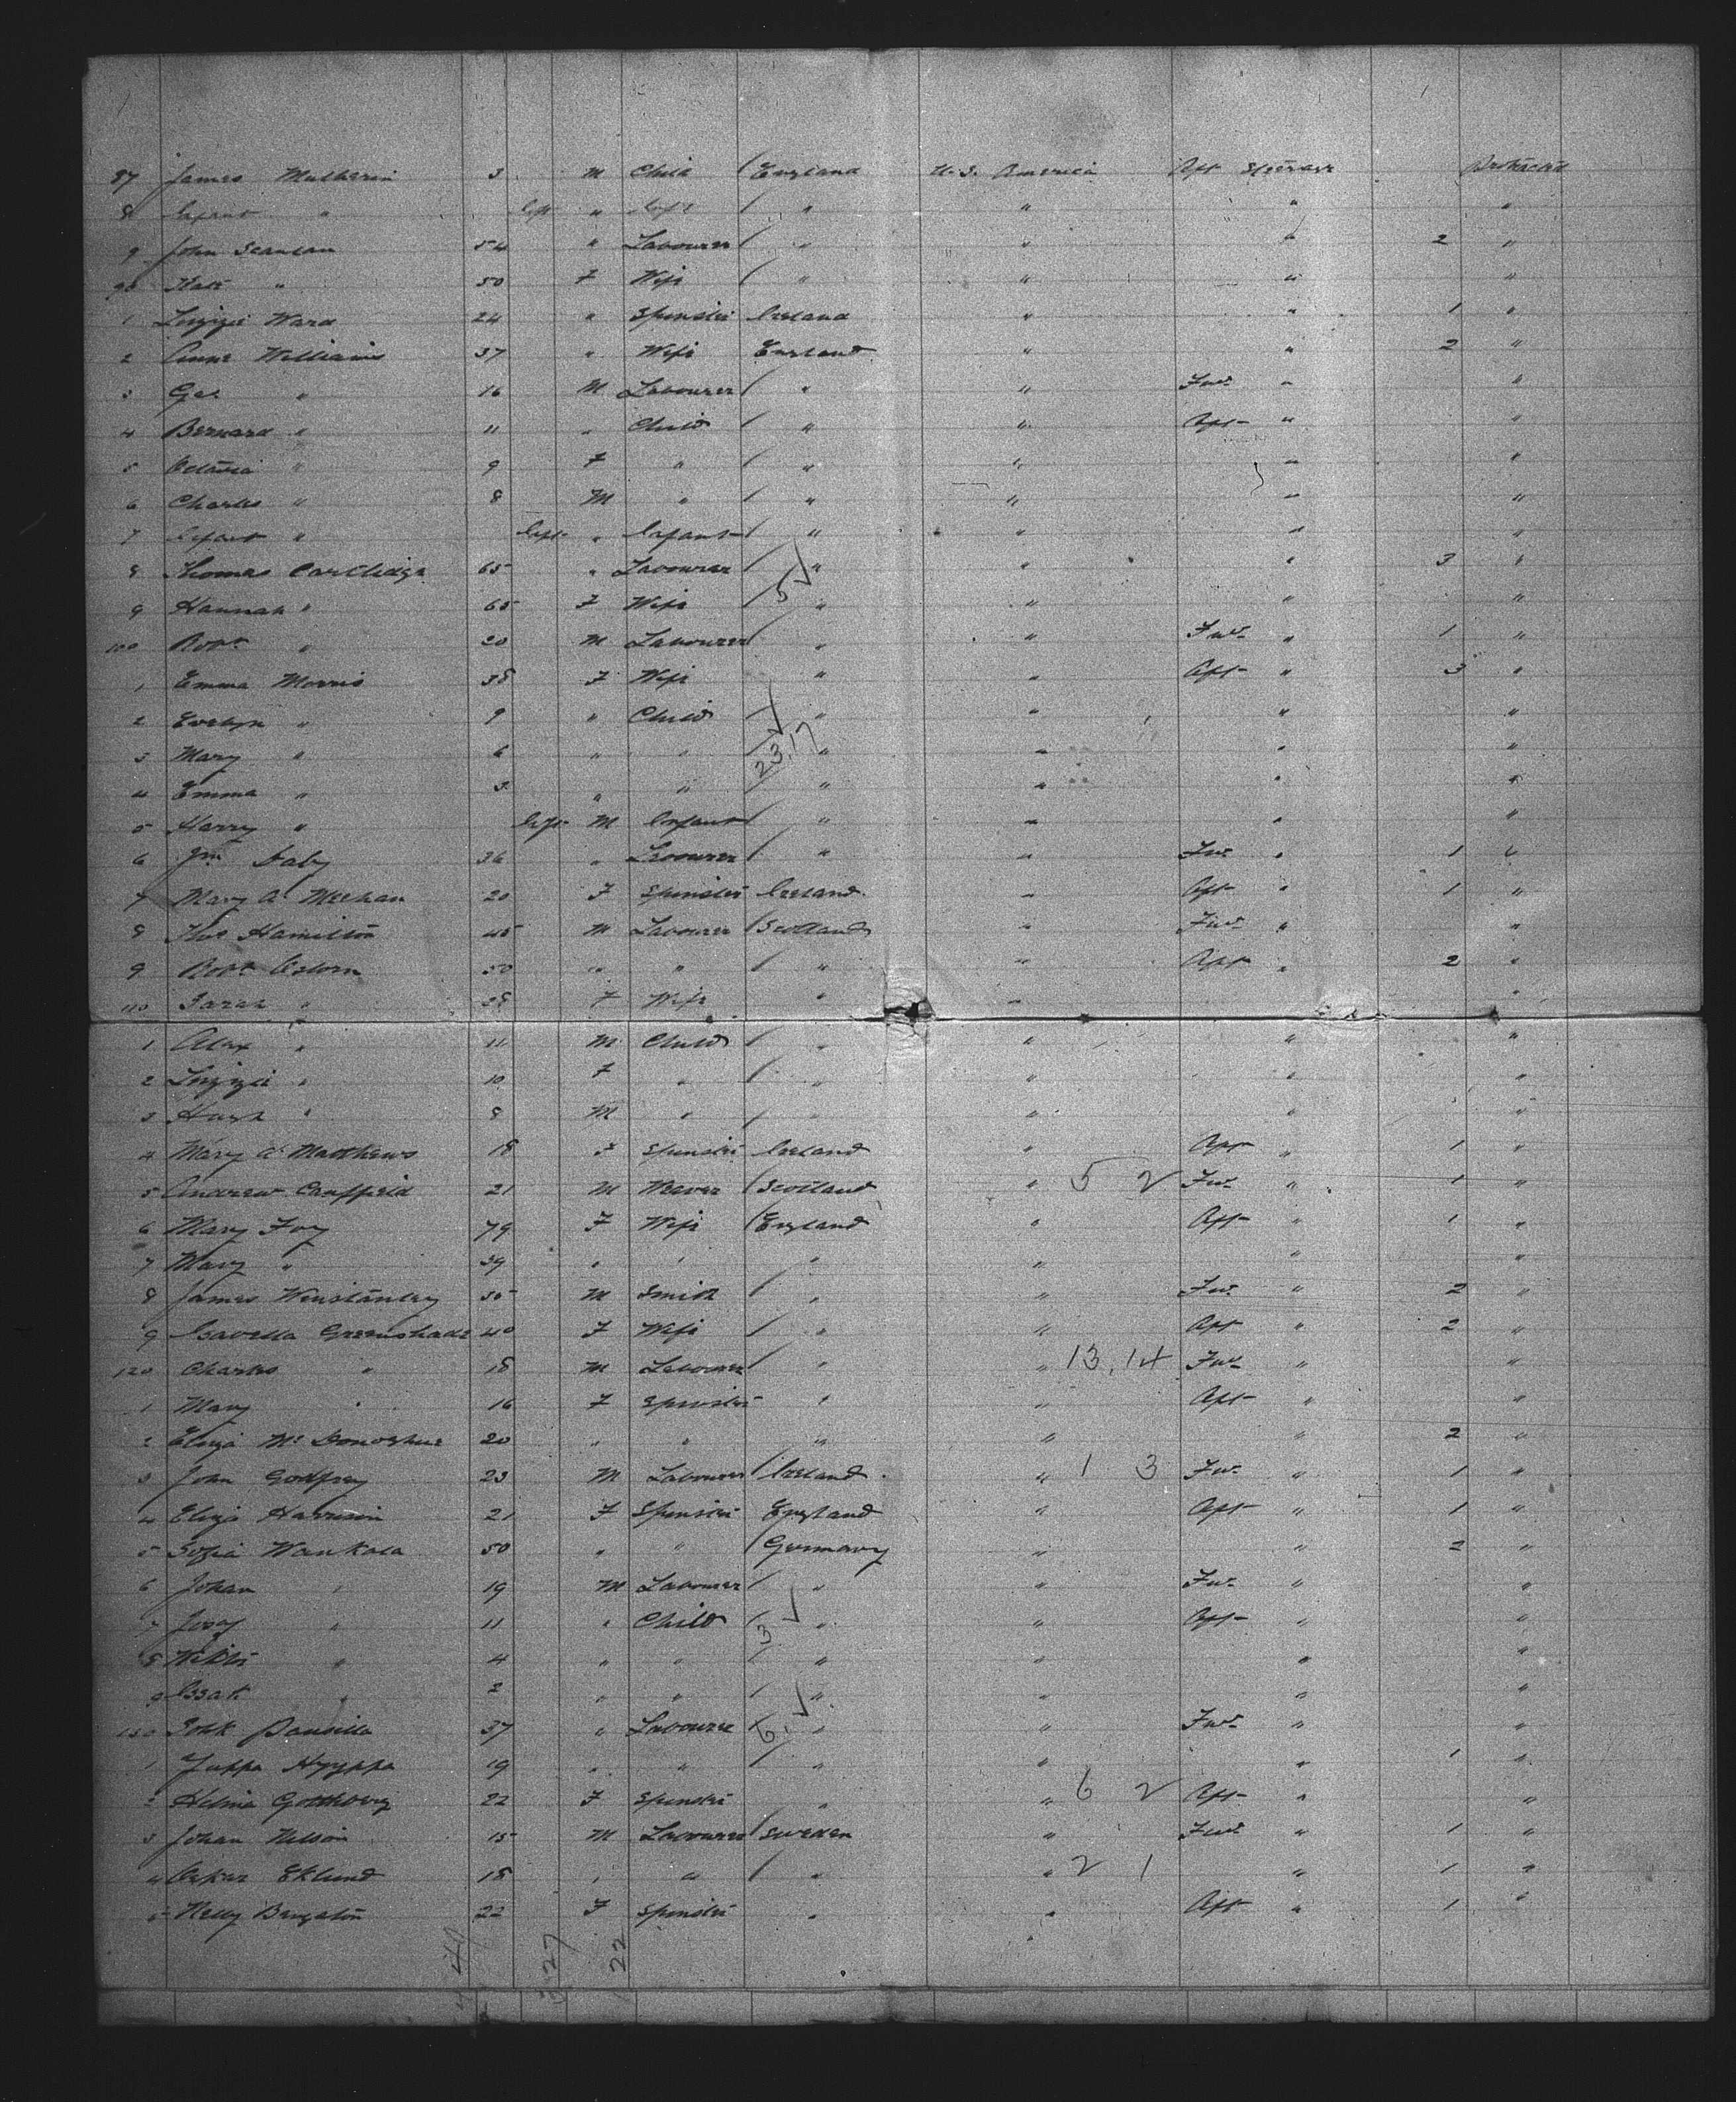 87 James Mulherin 3 M Child / England U.S. America Aft Steerage Protracted
8 Infant " Inft " Inft / " " " "
9 John Scanlan 54 " Labourer / " " " 2 "
90 Kate " 50 F Wife / " " " "
1 Lizzie Ward 24 " Spinster Ireland " " 1 "
2 Anne Williams 37 " Wife England " " 2 "
3 Geo " 16 M Labourer / " " Fwd " "
4 Bernard " 11 " Child / " " Aft " "
5 Octavia " 9 F " / " " " "
6 Charles " 8 M " / " " " "
7 Infant " Inft " Infant / " " " "
8 Thomas Cartlidge 65 " Labourer / " " " 3 "
9 Hannah " 65 F Wife / 5 " " " "
100 Robt " 20 M Labourer / " " Fwd " 1 "
1 Emma Morris 38 F Wife " " Aft " 3 "
2 Evelyn " 9 " Child / " " " "
3 Mary " 6 " " / 23.17 " " " "
4 Emma " 3 " " / " " " "
5 Harry " Inft M Infant / " " " "
6 Jno Daly 36 " Labourer / " " Fwd " 1 "
7 Mary A Meehan 20 F Spinster Ireland " Aft " 1 "
8 Thos Hamilton 45 M Labourer / Scotland " Fwd " "
9 Robt Osborn 50 " " / " " Aft " 2 "
110 Sarah " 38 F Wife " " "
1 Alex " 11 M Child / " " " "
2 Lizzie " 10 F " / " " " "
3 Hugh " 8 M " / " " " "
4 Mary A Matthews 18 F Spinster Ireland " Aft " 1 "
5 Andrew Canffield 21 M Weaver / Scotland " 5 2 Fwd " 1 "
6 Mary Foy 79 F Wife / England " Aft " 1 "
7 Mary " 39 " " " " " "
8 James Winstanley 35 M Smith / " " Fwd " 2 "
9 Isabella Greenshade 40 F Wife / " " Aft " 2 "
120 Charles " 18 M Labourer / " " 13.14 Fwd " "
1 Mary " 16 F Spinster " " Aft " "
2 Eliza McDonoghue 20 " " " " " 2 "
3 John Godfrey 23 M Labourer / Ireland " 1 3 Fwd " 1 "
4 Eliza Harrison 21 F Spinster England " Aft " 1 "
5 Sofia Wankala 50 " " / Germany " " 2 "
6 Johan " 19 M Labourer / " " Fwd " "
7 Josef " 11 " Child / 3 " " Aft " "
8 " 4 " " / " " " "
9 Isak " 2 " " / " " " "
130 37 " Labourer / 6. " " Fwd " "
1 Juppa Hyyppa 19 " " / " " " 1 "
2 Helina Gottberg 22 F Spinster " " 6 2 Aft " "
3 Johan Nelson 15 M Labourer / Sweden " Fwd " 1 "
4 Oskar Eklund 18 " " / " " 2 1 " 1 "
5 Nelly Bengston 22 F Spinster " " Aft " 1 "
27 22